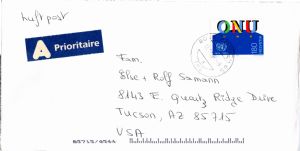 Luftpost
A Prioritaire
ONU
180
Fam.
Elke + Rolf Samann
8143 E. Quartz Ridge Drive
Tucson, AZ 85715
USA